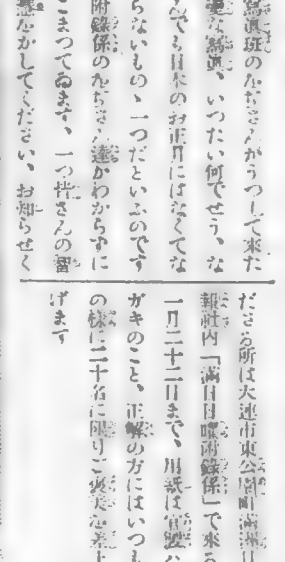 寫眞班のおぢさんがうつして來た
な寫眞、いつたい何でせう、な
んでも日本のお正月にはなくてな
らないものゝ一つだといふのです
附錄係のおぢさん達がわからずに
こまつてゐます、一つ皆さんの智
惠をかしてください、お知らせく
ださる所は大連市東公園町滿洲日
報社内「滿日日曜附錄係」で來る
一月二十二日まで、用紙は官製ハ
ガキのこと、正解の方にはいつも
の樣に二十名に限りご褒美を差上
げます